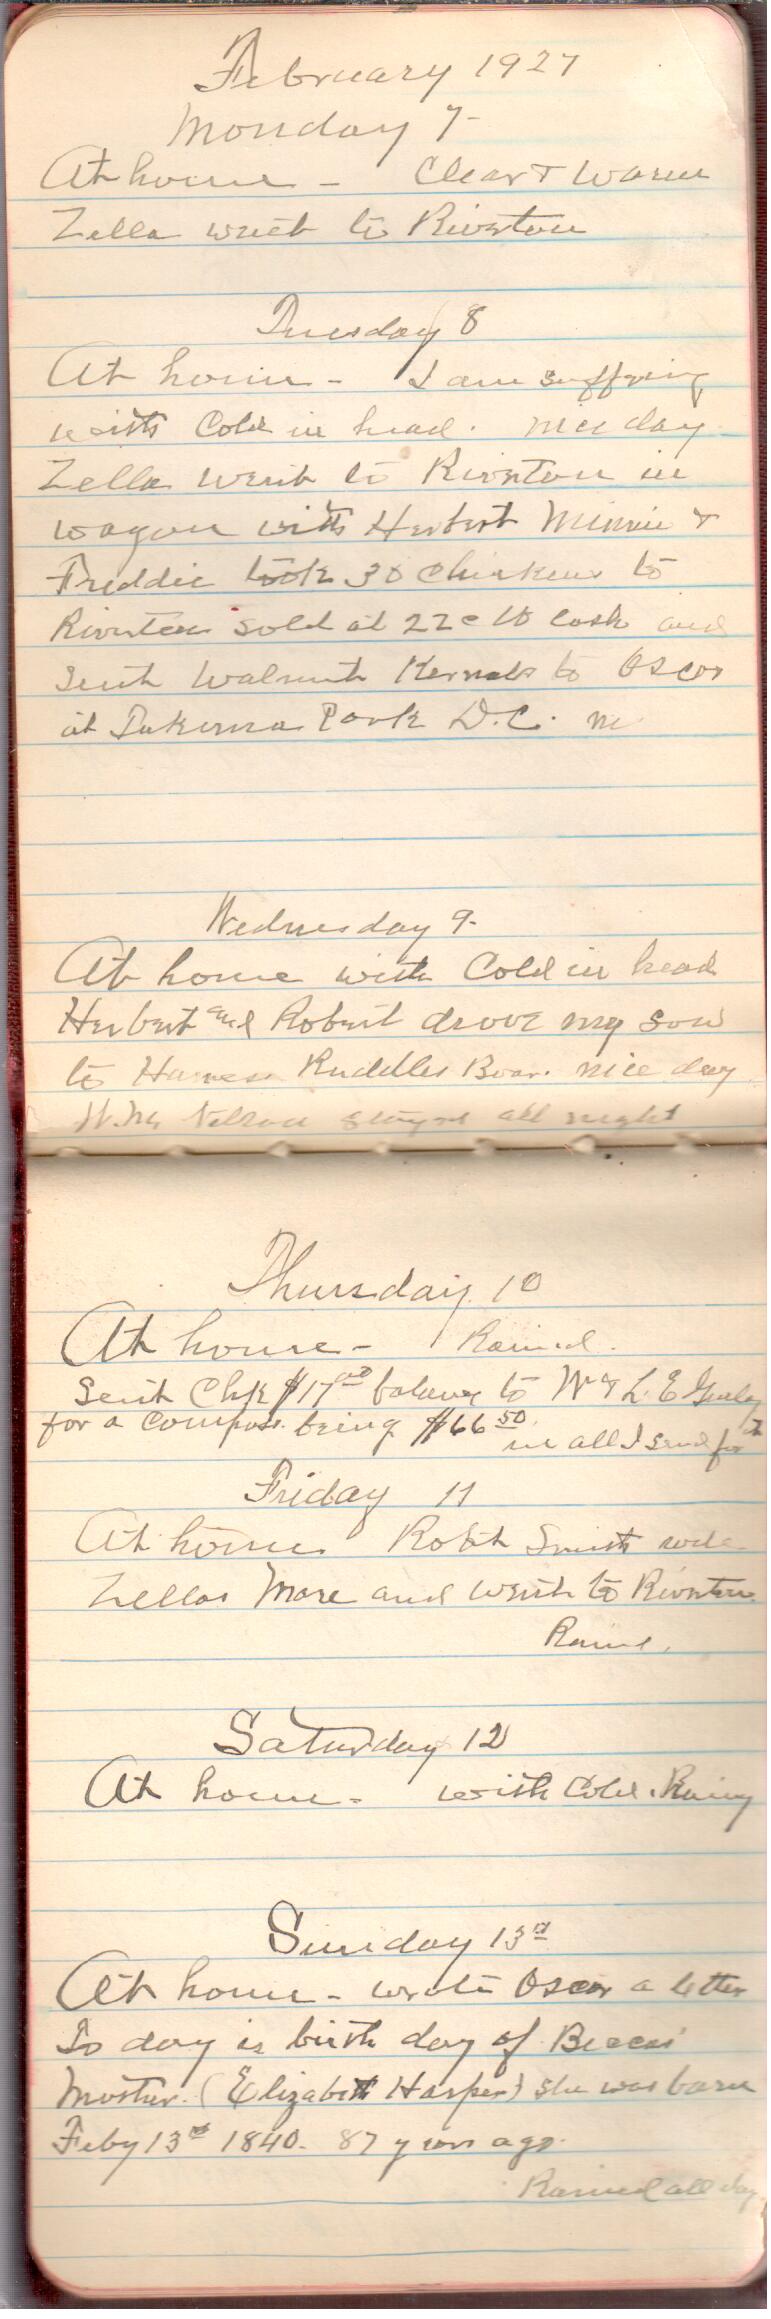 February 1927
Monday 7-
At home - Clear & Warm
Zella went to Riverton
Tuesday 8
At home - I am suffering
with Cold in head. nice day
Zella went to Riverton in
wagon with Herbert Minnie &
Freddie took 30 Chickens to
Riverton sold at 22c lb Cash and
sent Walnut Kernels to Oscar
at Takoma Park D.C.
Wednesday 9-
At home with Cold in head
Herbert and Robert drove my sow
to Harness Ruddles Boar. nice day
Nelson stayed all night
Thursday 10
At home - Rained.
Sent Chk $17.00 balance to W & L. E Gurley
for a compass being $66.50 in all I send for it
Friday 11
At home Robt Smith rode
Zellas Mare and went to Riverton.
Rained.
Saturday 12
At home - with Cold. Rainy
Sunday 13th
At home - wrote Oscar a letter
To day is birth day of
Mother. (Elizabeth Harper) She was born
Feby 13th 1840. 87 years ago.
Rained all day